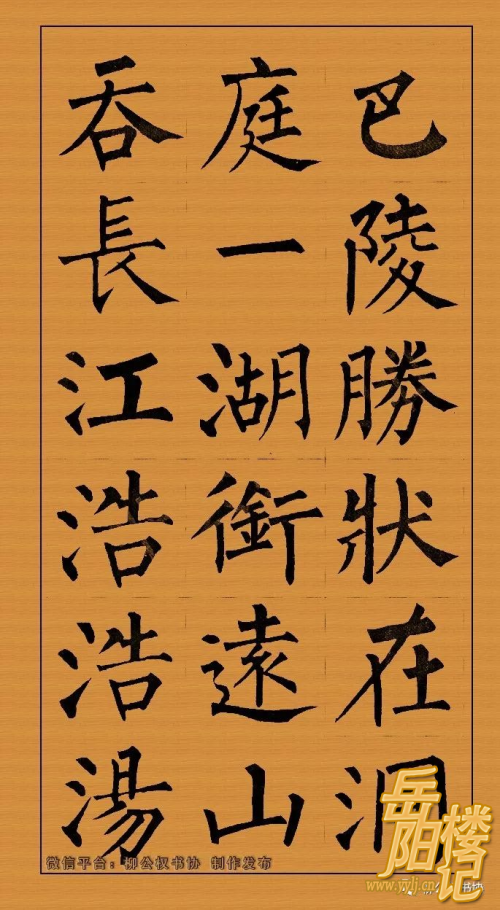 巴陵勝狀在洞
庭一湖銜遠山
吞長江浩浩湯
微信平台：柳公权书协 制作发布
岳阳楼记
www.yylj.cn